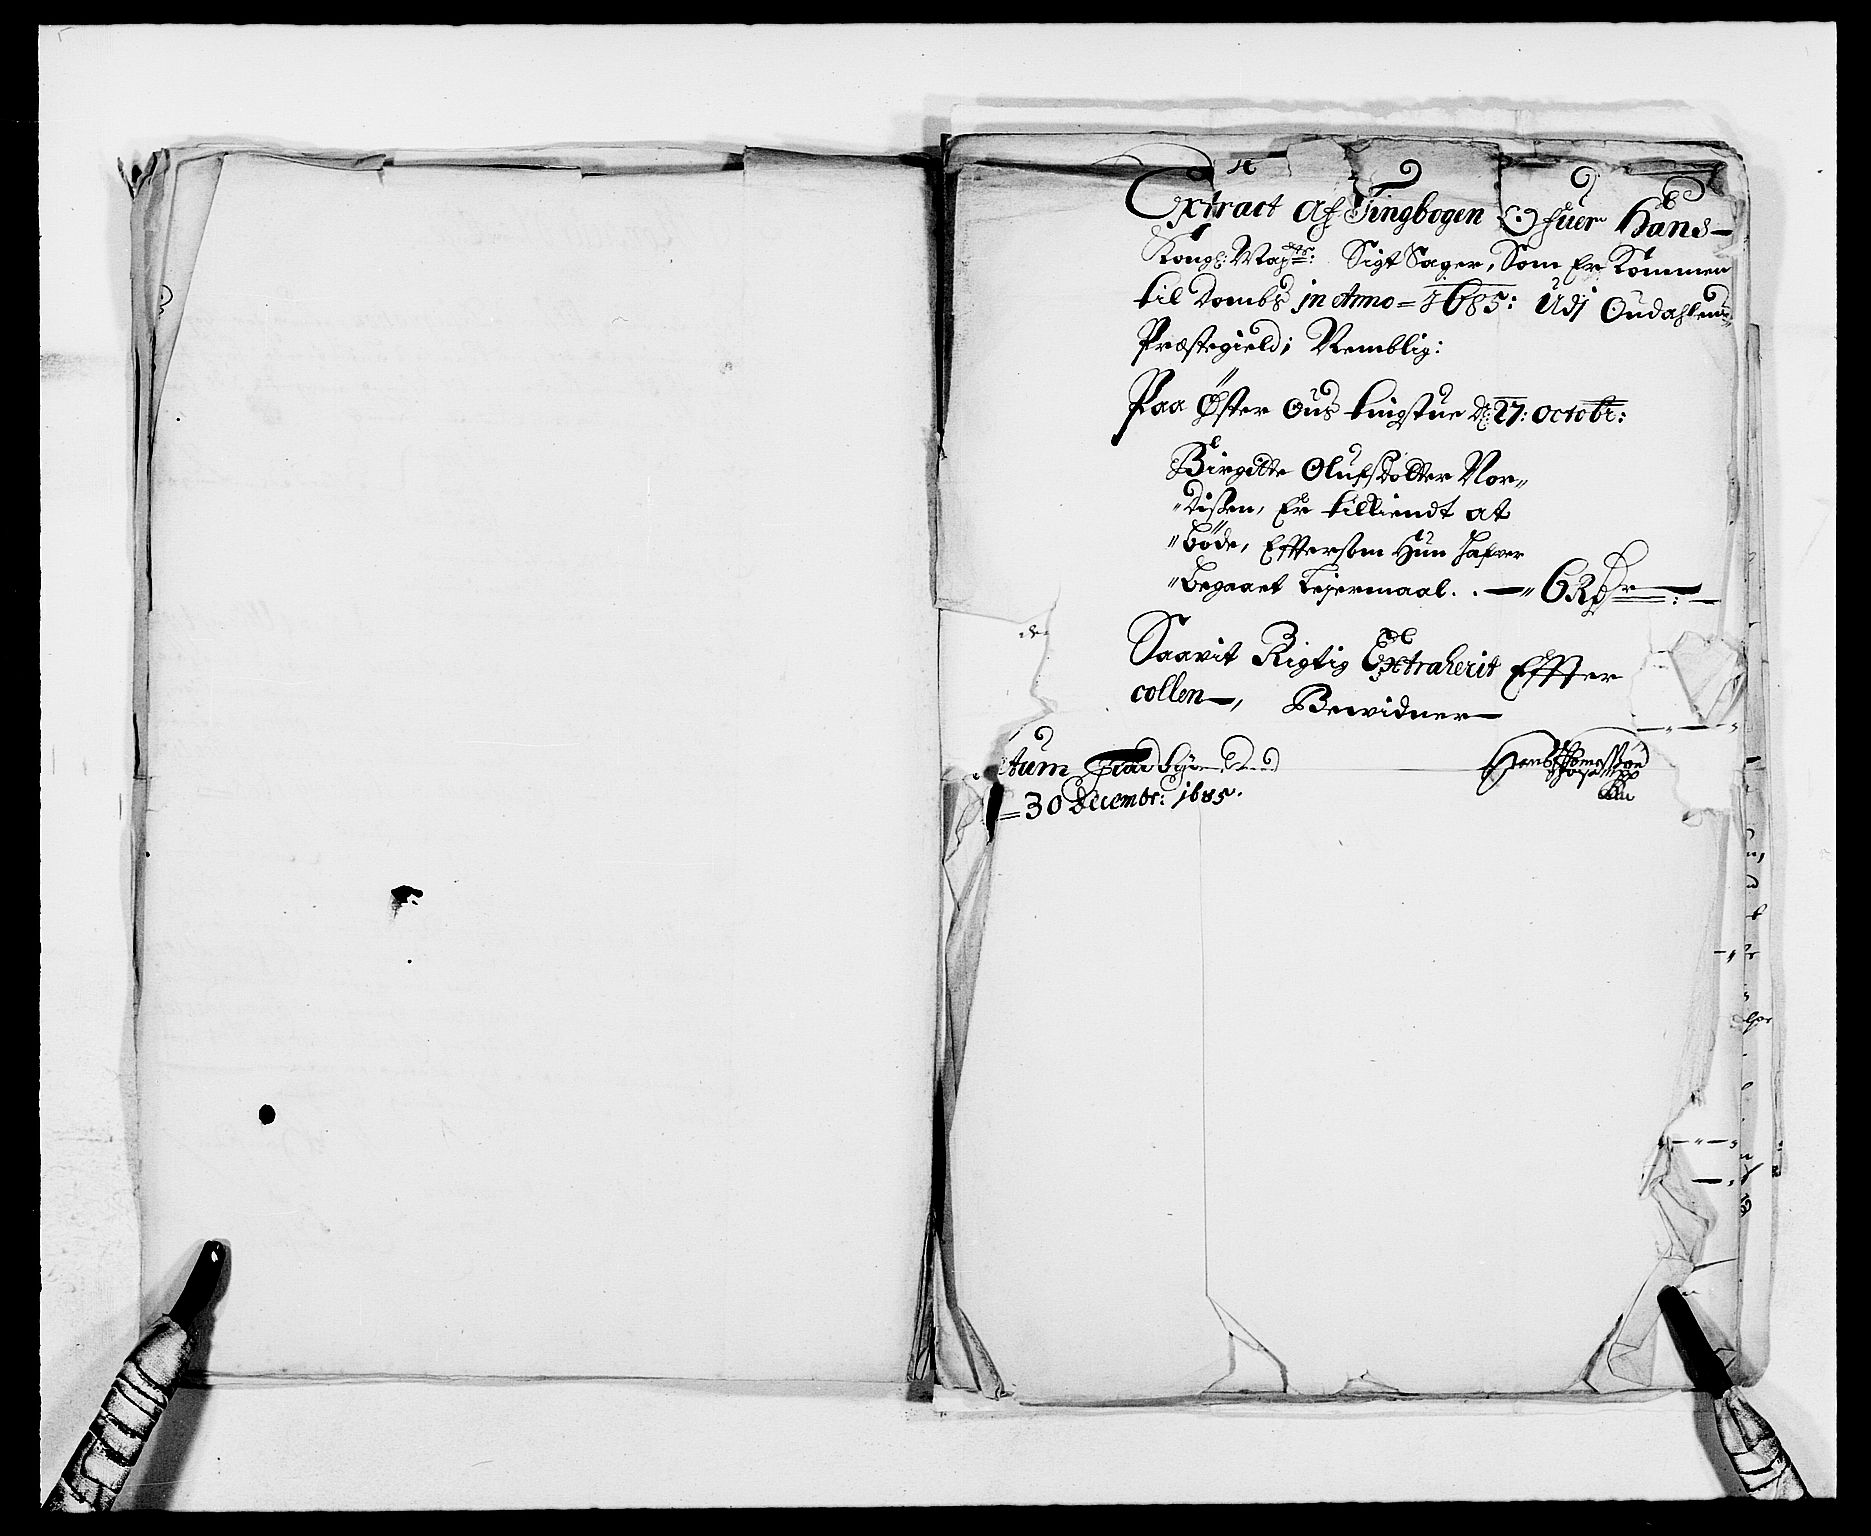 Extract af Tingbogen Ofuer Hans
Kongl: Maytts: Sigt Sager, Som Er Kommen
til Dombs in Anno = 1685: Udj Oudahlens
Præstegield; Nemblig:
Paa Öster Ous tingstue d: 27: Octobr:
Birgitte Olufsdotter Nor„
„disen, Er tilkiendt at
„böde, Efftersom Hun hafver
„begaaet Leyermaal. . — „ 6 Rdr —:—
Saavit Rigtig Extraherit Effter
collen —, Bewidner —
tum
= 30 Decembr: 1685.